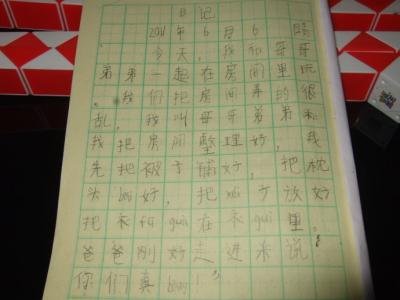 日记
2011年6月6 晴
今天，我和哥哥
弟弟一起在房间里玩
。我们把房间弄的很
乱，我叫哥哥弟弟和
我把房间整理好，我
先把被子铺好，把枕
头bai好，把xié子放好
把衣 guà在衣guì里。
爸爸刚好走进来说：
你们真bang！"